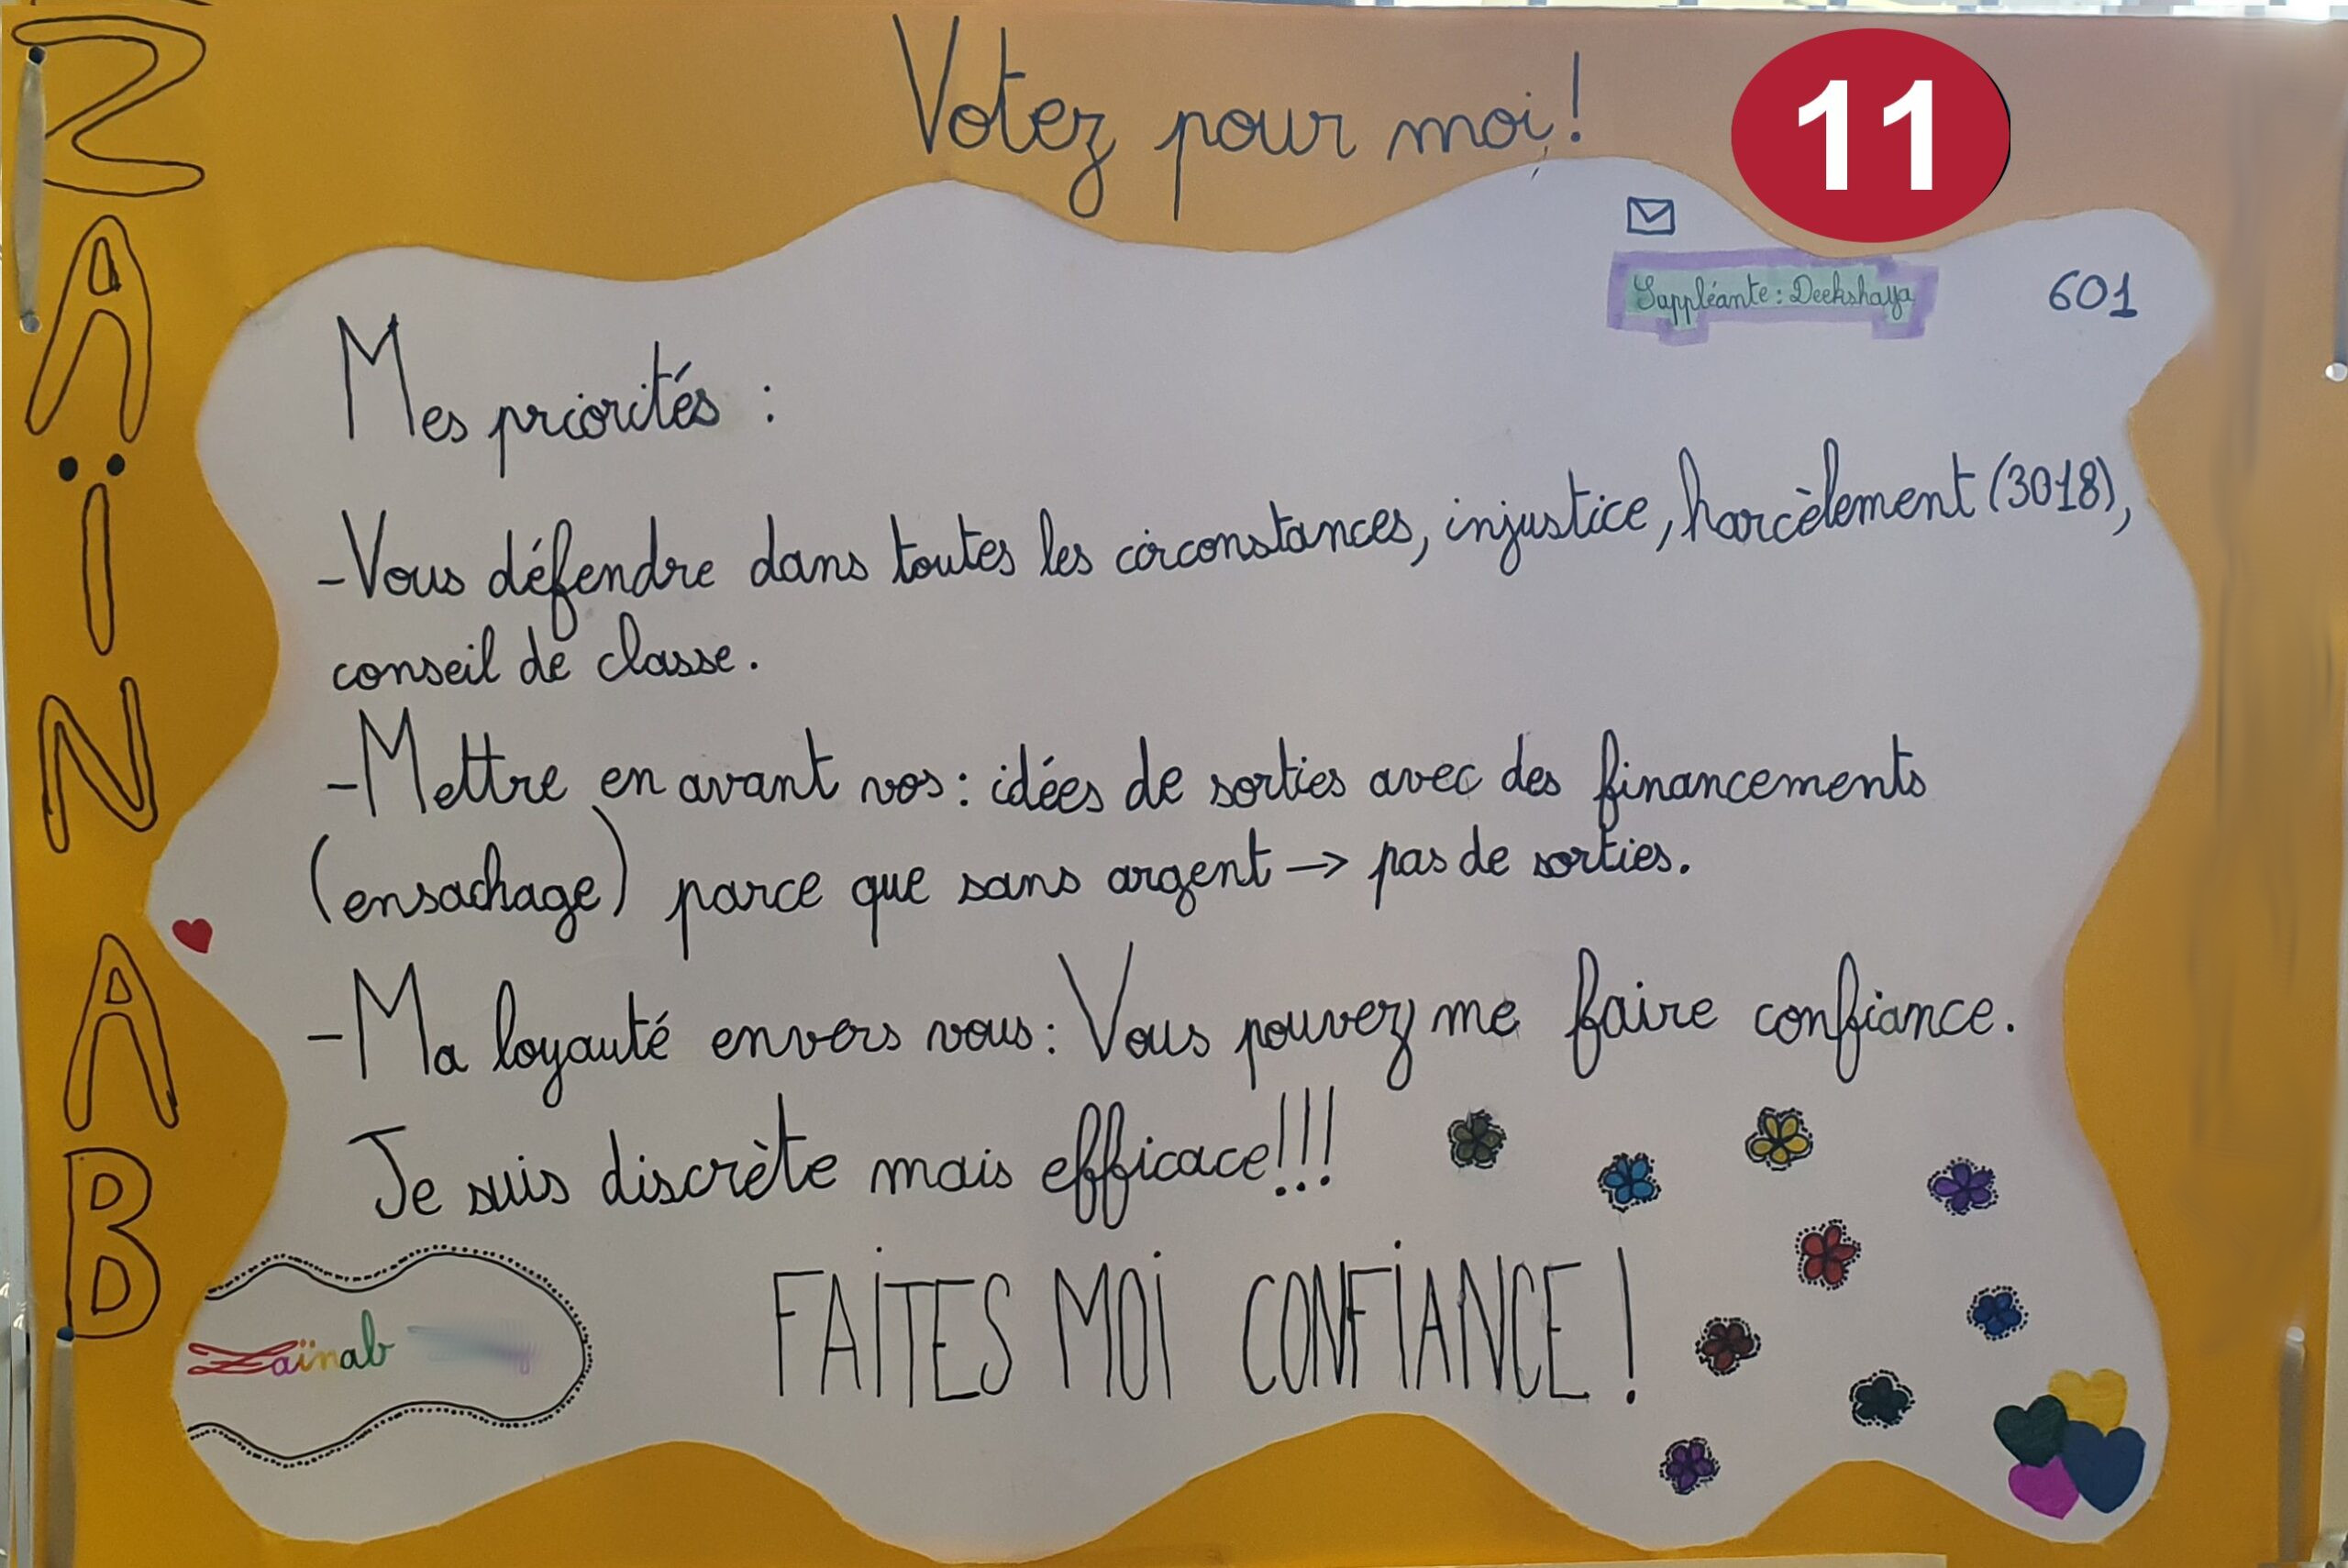 Votez pour moi!
11
ZAÏNAB
Suppléante : Deekshaya
601
Mes priorités :
-Vous défendre dans toutes les circonstances, injustice, harcèlement (3018),
conseil de classe.
-Mettre en avant vos : idées de sorties avec des financements
(ensachage) parce que sans argent → pas de sorties.
-Ma loyauté envers vous : Vous pouvez me faire confiance.
Je suis discrète mais efficace!!!
FAITES MOI CONFIANCE !
Zaïnab